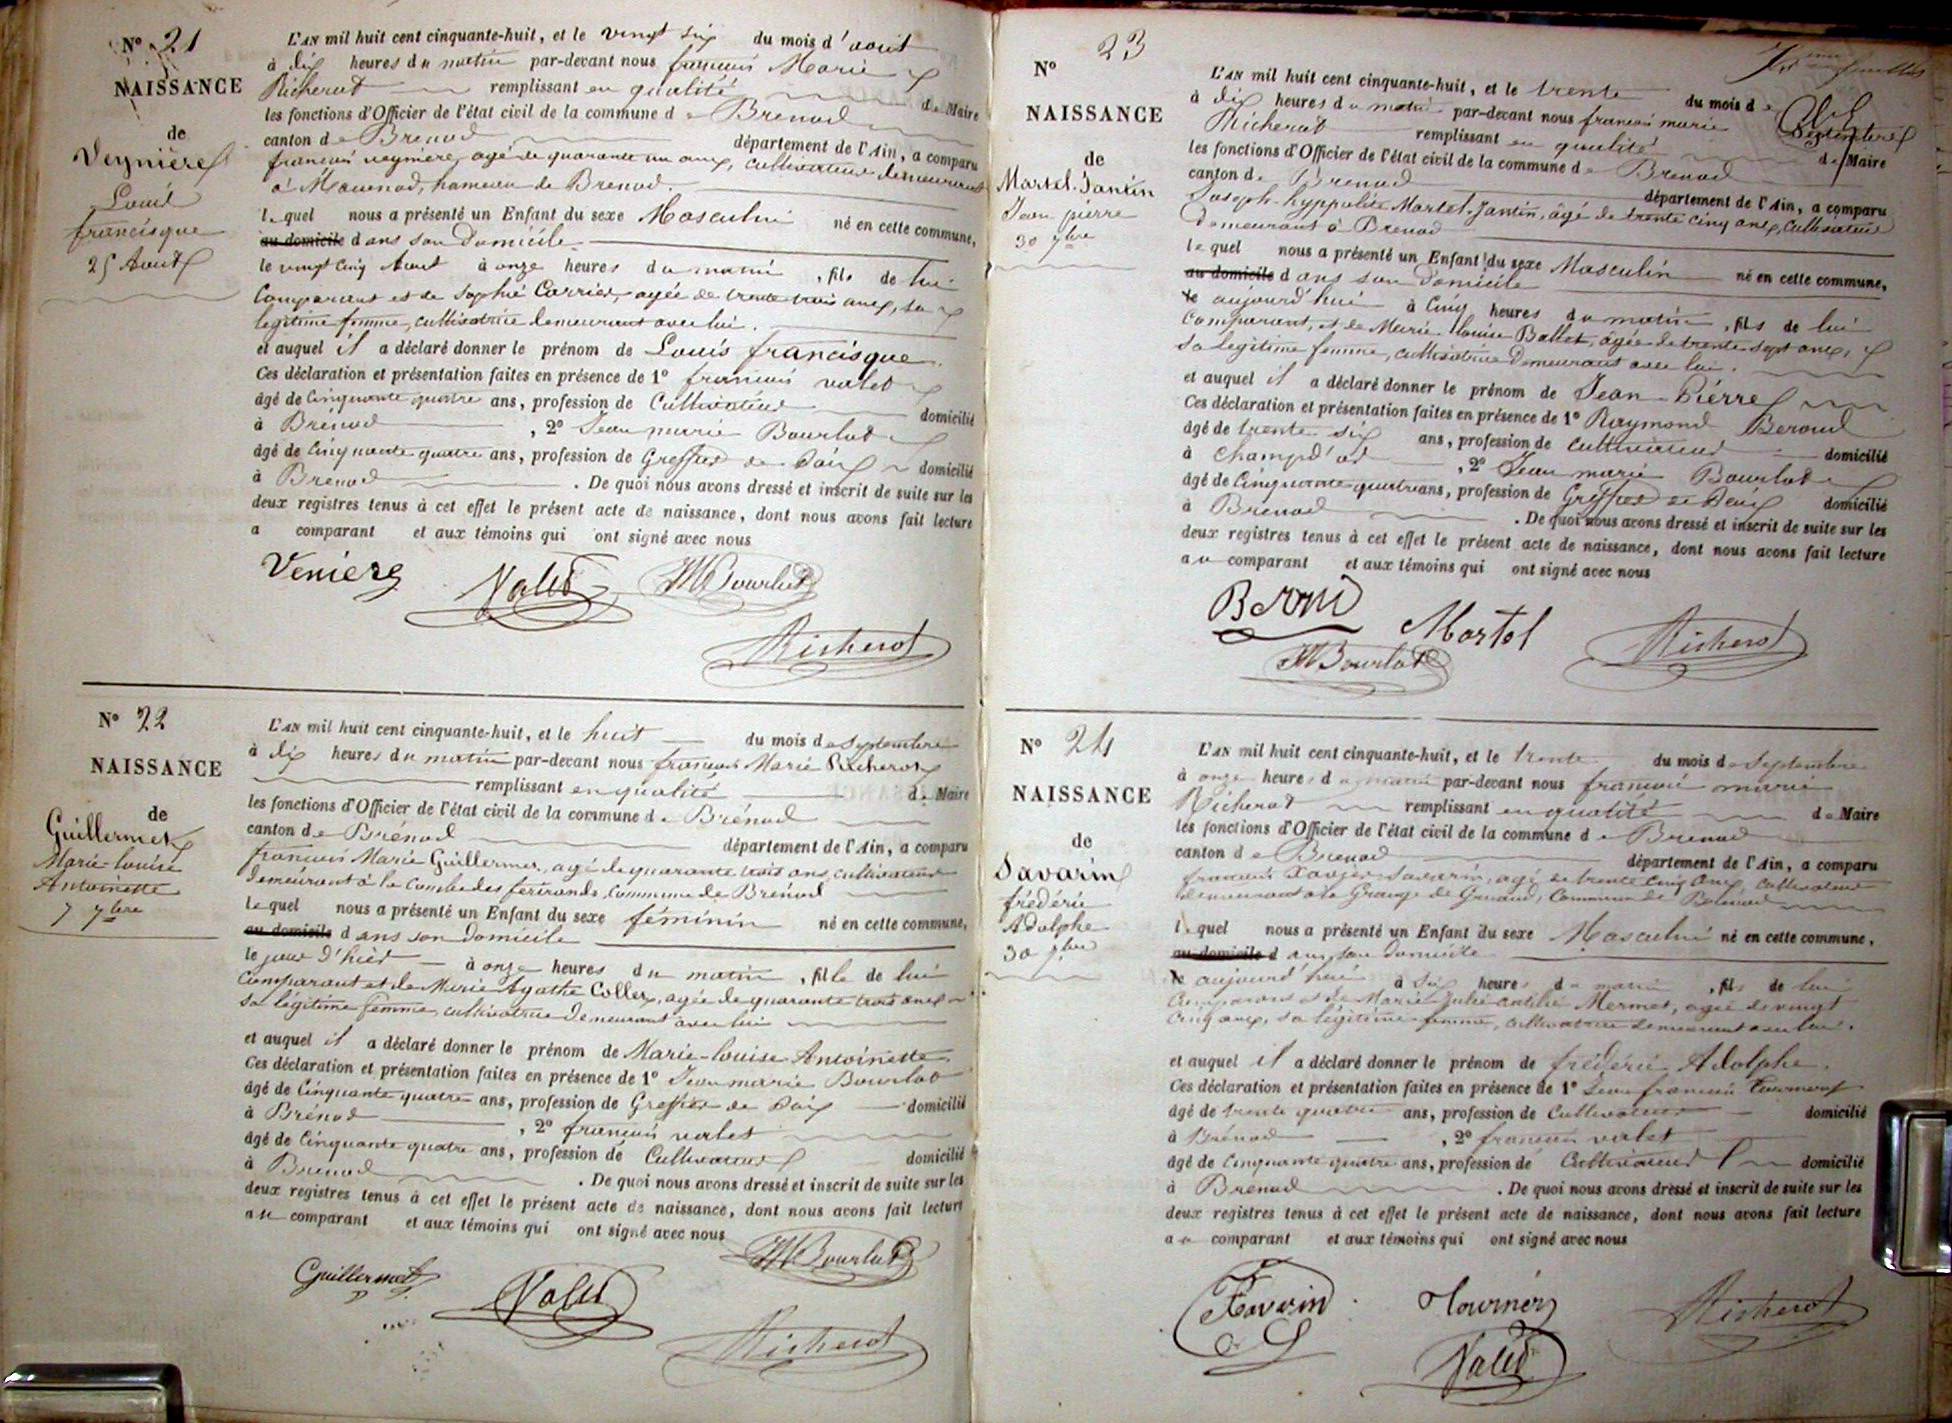 N° 21
NAISSANCE
de
Veynière
Louis
francisque
25 Aout
L'AN mil huit cent cinquante-huit, et le vingt six du mois d'aout
à dix heures du matin par-devant nous françois Marie
Richerot remplissant en qualité de Maire
les fonctions d'Officier de l'état civil de la commune de Brenod
canton de Brenod département de l'Ain, a comparu
françois veynière, agé de quarante un ans, cultivateur demeurant
à Macconod, hameau de Brenod.
lequel nous a présenté un Enfant du sexe Masculin né en cette commune,
au domicile dans son Domicile
le vingt cinq Aout à onze heures du matin, fils de lui
comparant et de Sophie Carrier, agée de trente trois ans, sa
legitime femme, cultivatrice demeurant avec lui.
et auquel il a déclaré donner le prénom de Louis francisque.
Ces déclaration et présentation faites en présence de 1° françois valet
âgé de Cinquante quatre ans, profession de Cultivateur domicilié
à Brénod, 2° Jean marie Bourlot
âgé de cinquante quatre ans, profession de Greffier de Paix domicilié
à Brenod. De quoi nous avons dressé et inscrit de suite sur les
deux registres tenus à cet effet le présent acte de naissance, dont nous avons fait lecture
a comparant et aux témoins qui ont signé avec nous
Veniere Valet JMBourlot
Richerot
N° 22
NAISSANCE
de
Guillermet
Marie-louise
Antoinette
7 7bre
L'AN mil huit cent cinquante-huit, et le huit du mois de Septembre
à dix heures du matin par-devant nous françois Marie Richerot
remplissant en qualité de Maire
les fonctions d'Officier de l'état civil de la commune de Brénod
canton de Brénod département de l'Ain, a comparu
françois Marie Guillermet, agé de quarante trois ans, cultivateur
demeurant à la combe des fertrands, commune de Brenod
lequel nous a présenté un Enfant du sexe féminin né en cette commune,
au domicile dans son domicile
le jour d'hier à onze heures du matin, fille de lui
comparant et de Marie Agathe Collet, agée de quarante trois ans
sa légitime femme, cultivatrice demeurant avec lui
et auquel il a déclaré donner le prénom de Marie-louise Antoinette.
Ces déclaration et présentation faites en présence de 1° Jean marie Bourlot
âgé de Cinquante quatre ans, profession de Greffier de Paix domicilié
à Brénod, 2° françois valet
âgé de Cinquante quatre ans, profession de Cultivateur domicilié
à Brenod. De quoi nous avons dressé et inscrit de suite sur les
deux registres tenus à cet effet le présent acte de naissance, dont nous avons fait lecture
au comparant et aux témoins qui ont signé avec nous
JMBourlot
Guillermet Valet
Richerot
N° 23
NAISSANCE
de
Martel-Jantin
Jean pierre
30 7bre
L'AN mil huit cent cinquante-huit, et le trente du mois de
Septembre
à dix heures du matin par-devant nous françois marie
Richerot remplissant en qualité de Maire
les fonctions d'Officier de l'état civil de la commune de Brenod
canton de Brenod département de l'Ain, a comparu
Joseph-hyppolite Martel-Jantin, âgé de trente cinq ans, cultivateur
demeurant à Brenod
lequel nous a présenté un Enfant du sexe Masculin né en cette commune,
au domicile dans son Domicile
le aujourd'hui à Cinq heures du matin, fils de lui
comparant, et de Marie-louise Ballet, âgée de trente sept ans,
sa legitime femme, cultivatrice Demeurant avec lui.
et auquel il a déclaré donner le prénom de Jean-Pierre
Ces déclaration et présentation faites en présence de 1° Raymond Beroud
âgé de trente six ans, profession de cultivateur domicilié
à champd'or, 2° Jean marie Bourlot
âgé de Cinquante quatre ans, profession de Greffier de Paix domicilié
à Brenod. De quoi nous avons dressé et inscrit de suite sur les
deux registres tenus à cet effet le présent acte de naissance, dont nous avons fait lecture
au comparant et aux témoins qui ont signé avec nous
Martel
JMBourlot Richerot
N° 24
NAISSANCE
de
Savarin
frédéric
Adolphe
30 7bre
L'AN mil huit cent cinquante-huit, et le trente du mois de Septembre
à onze heures du matin par-devant nous françois marie
Richerot remplissant en qualité de Maire
les fonctions d'Officier de l'état civil de la commune de Brenod
canton de Brenod département de l'Ain, a comparu
françois Xavier Savarin, agé de trente cinq ans, cultivateur
demeurant à la Grange de commune de Brenod
lequel nous a présenté un Enfant du sexe Masculin né en cette commune,
au domicile dans son domicile
le aujourd'hui à Six heures du matin, fils de lui
comparant et de Marie Julie Mermet, agée de vingt
cinq ans, sa légitime femme, cultivatrice demeurant avec lui.
et auquel il a déclaré donner le prénom de frédéric Adolphe.
Ces déclaration et présentation faites en présence de 1° Jean françois Tournery
âgé de trente quatre ans, profession de Cultivateur domicilié
à Brénod, 2° françois valet
âgé de Cinquante quatre ans, profession de Cultivateur domicilié
à Brenod. De quoi nous avons dressé et inscrit de suite sur les
deux registres tenus à cet effet le présent acte de naissance, dont nous avons fait lecture
au comparant et aux témoins qui ont signé avec nous
Savarin Richerot
Valet